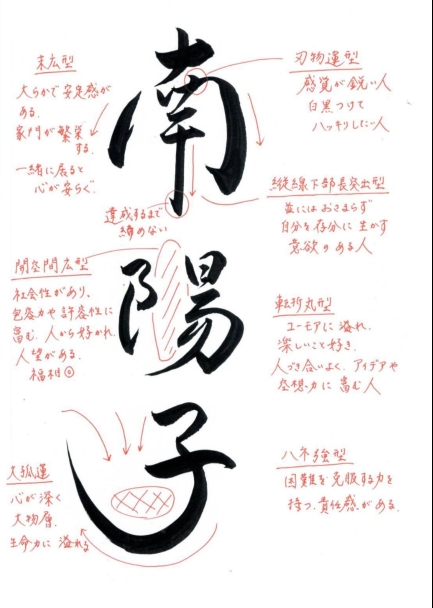 南
陽
子
末広型
大らかで安定感が
ある.
家門が繁栄
する.
一緒に居ると
心が安らぐ.
刃物運型
感覚が鋭い人
白黒つけて
ハッキリしたい人
縦線下部長突出型
並にはおさまらず
自分を存分に生かす
意欲のある人
達成するまで
締めない
開空間広型
社会性があり、
包容力や許容性に
富む. 人から好かれ
人望がある.
福相◎
転折丸型
ユーモアに溢れ.
楽しいこと好き.
人づき合いよく. アイデアや
空想力に富む人
大弧運
心が深く
大物層.
生命力に溢れる
ハネ強型
困難を克服する力を
持つ. 責任感がある.